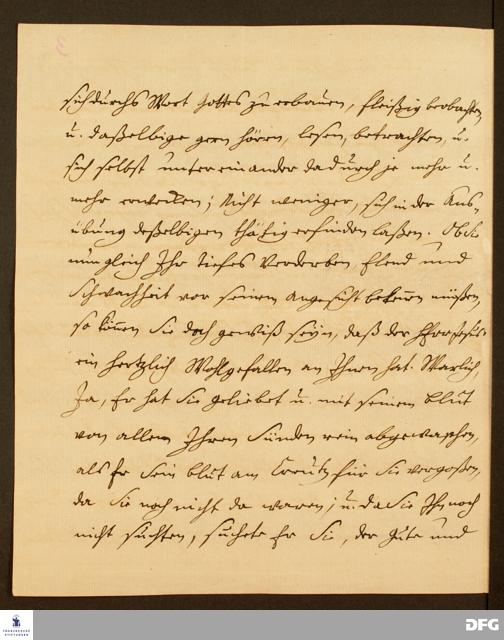 3
sich durchs Wort Gottes zu erbauen, fleißig beobachten
u. daßelbige gern hören, lesen, betrachten, u.
sich selbst untereinander dadurch je mehr u.
mehr erwecken; Nicht weniger, sich in der Aus-
übung deßelbigen thätig erfinden laßen. Ob Sie
nun gleich Ihr tiefes Verderben, Elend und
Schwachheit vor seinem Angesicht bekennen müßen,
so können Sie doch gewiß seyn, daß der
ein hertzlich Wohlgefallen an Ihnen hat. Warlich,
Ja, Er hat Sie geliebet u. mit seinem Blut
von allen Ihren Sünden rein abgewaschen,
als Er Sein Blut am Creutz für Sie vergoßen,
da Sie noch nicht da waren; u. da Sie Ihn noch
nicht suchten, suchete Er Sie, der Gute und
FRANCKESCHE
STIFTUNGEN
DFG